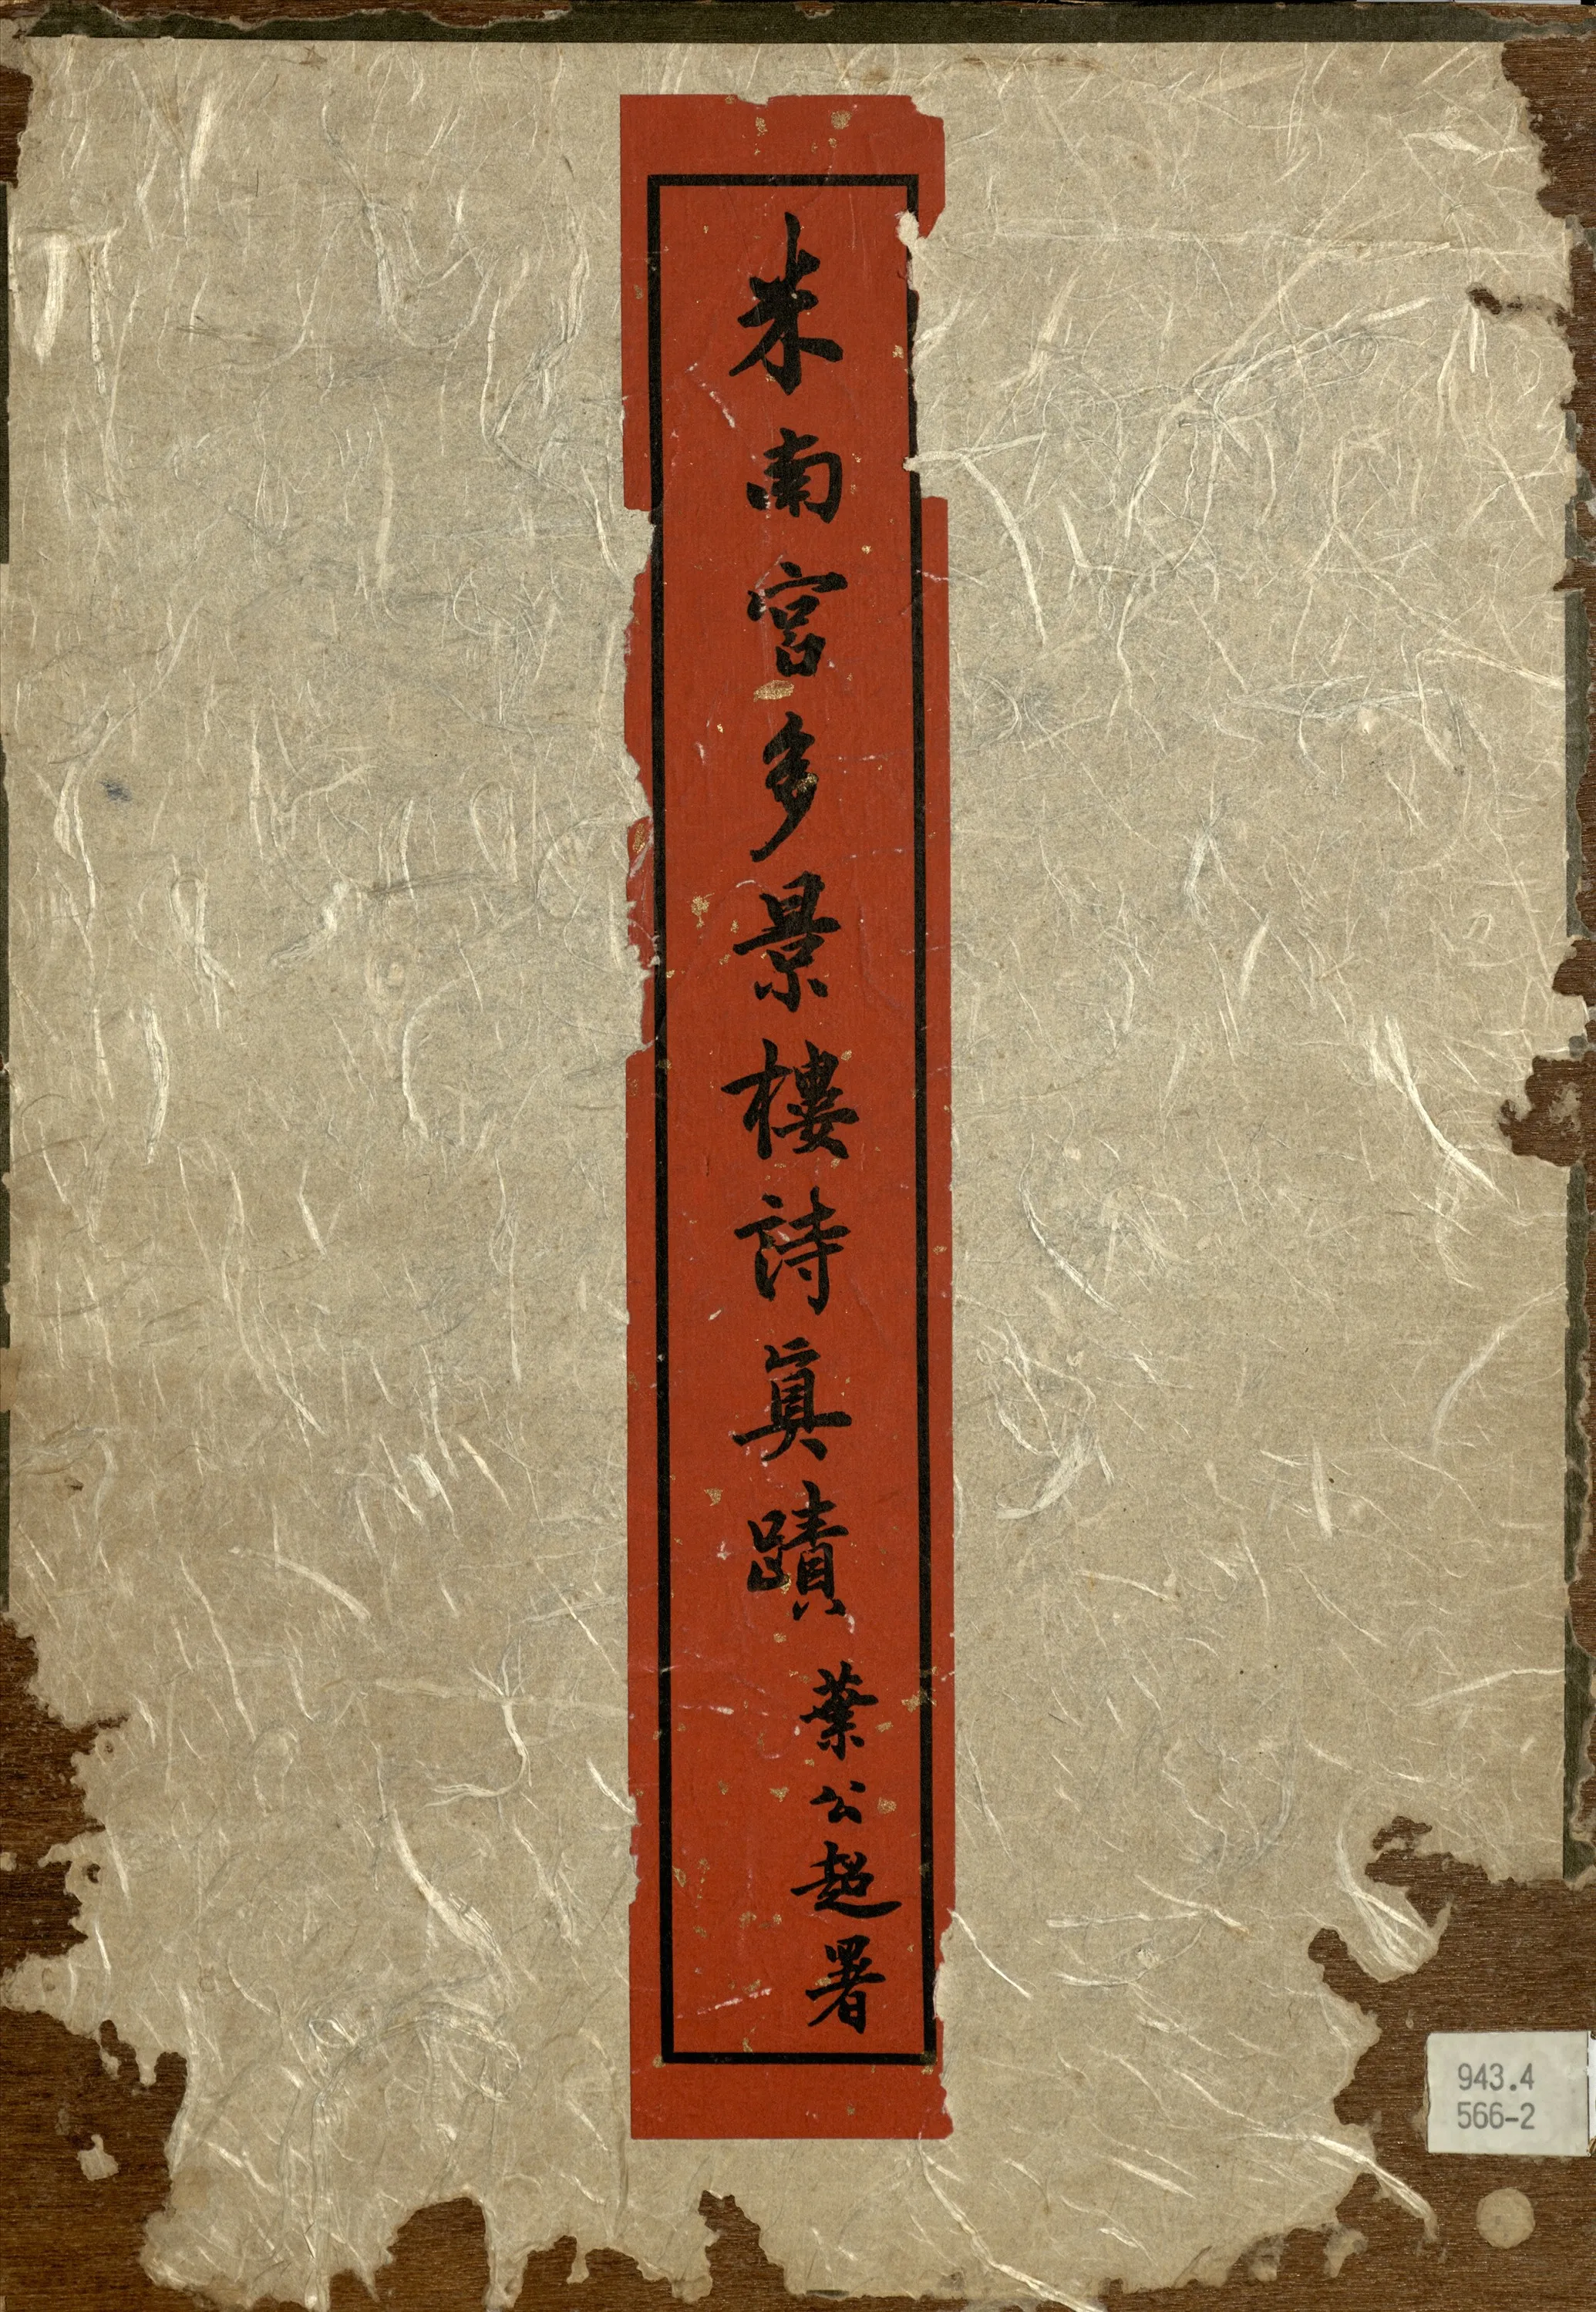 米南宮多景樓詩眞蹟
葉公超署
943.4
566-2